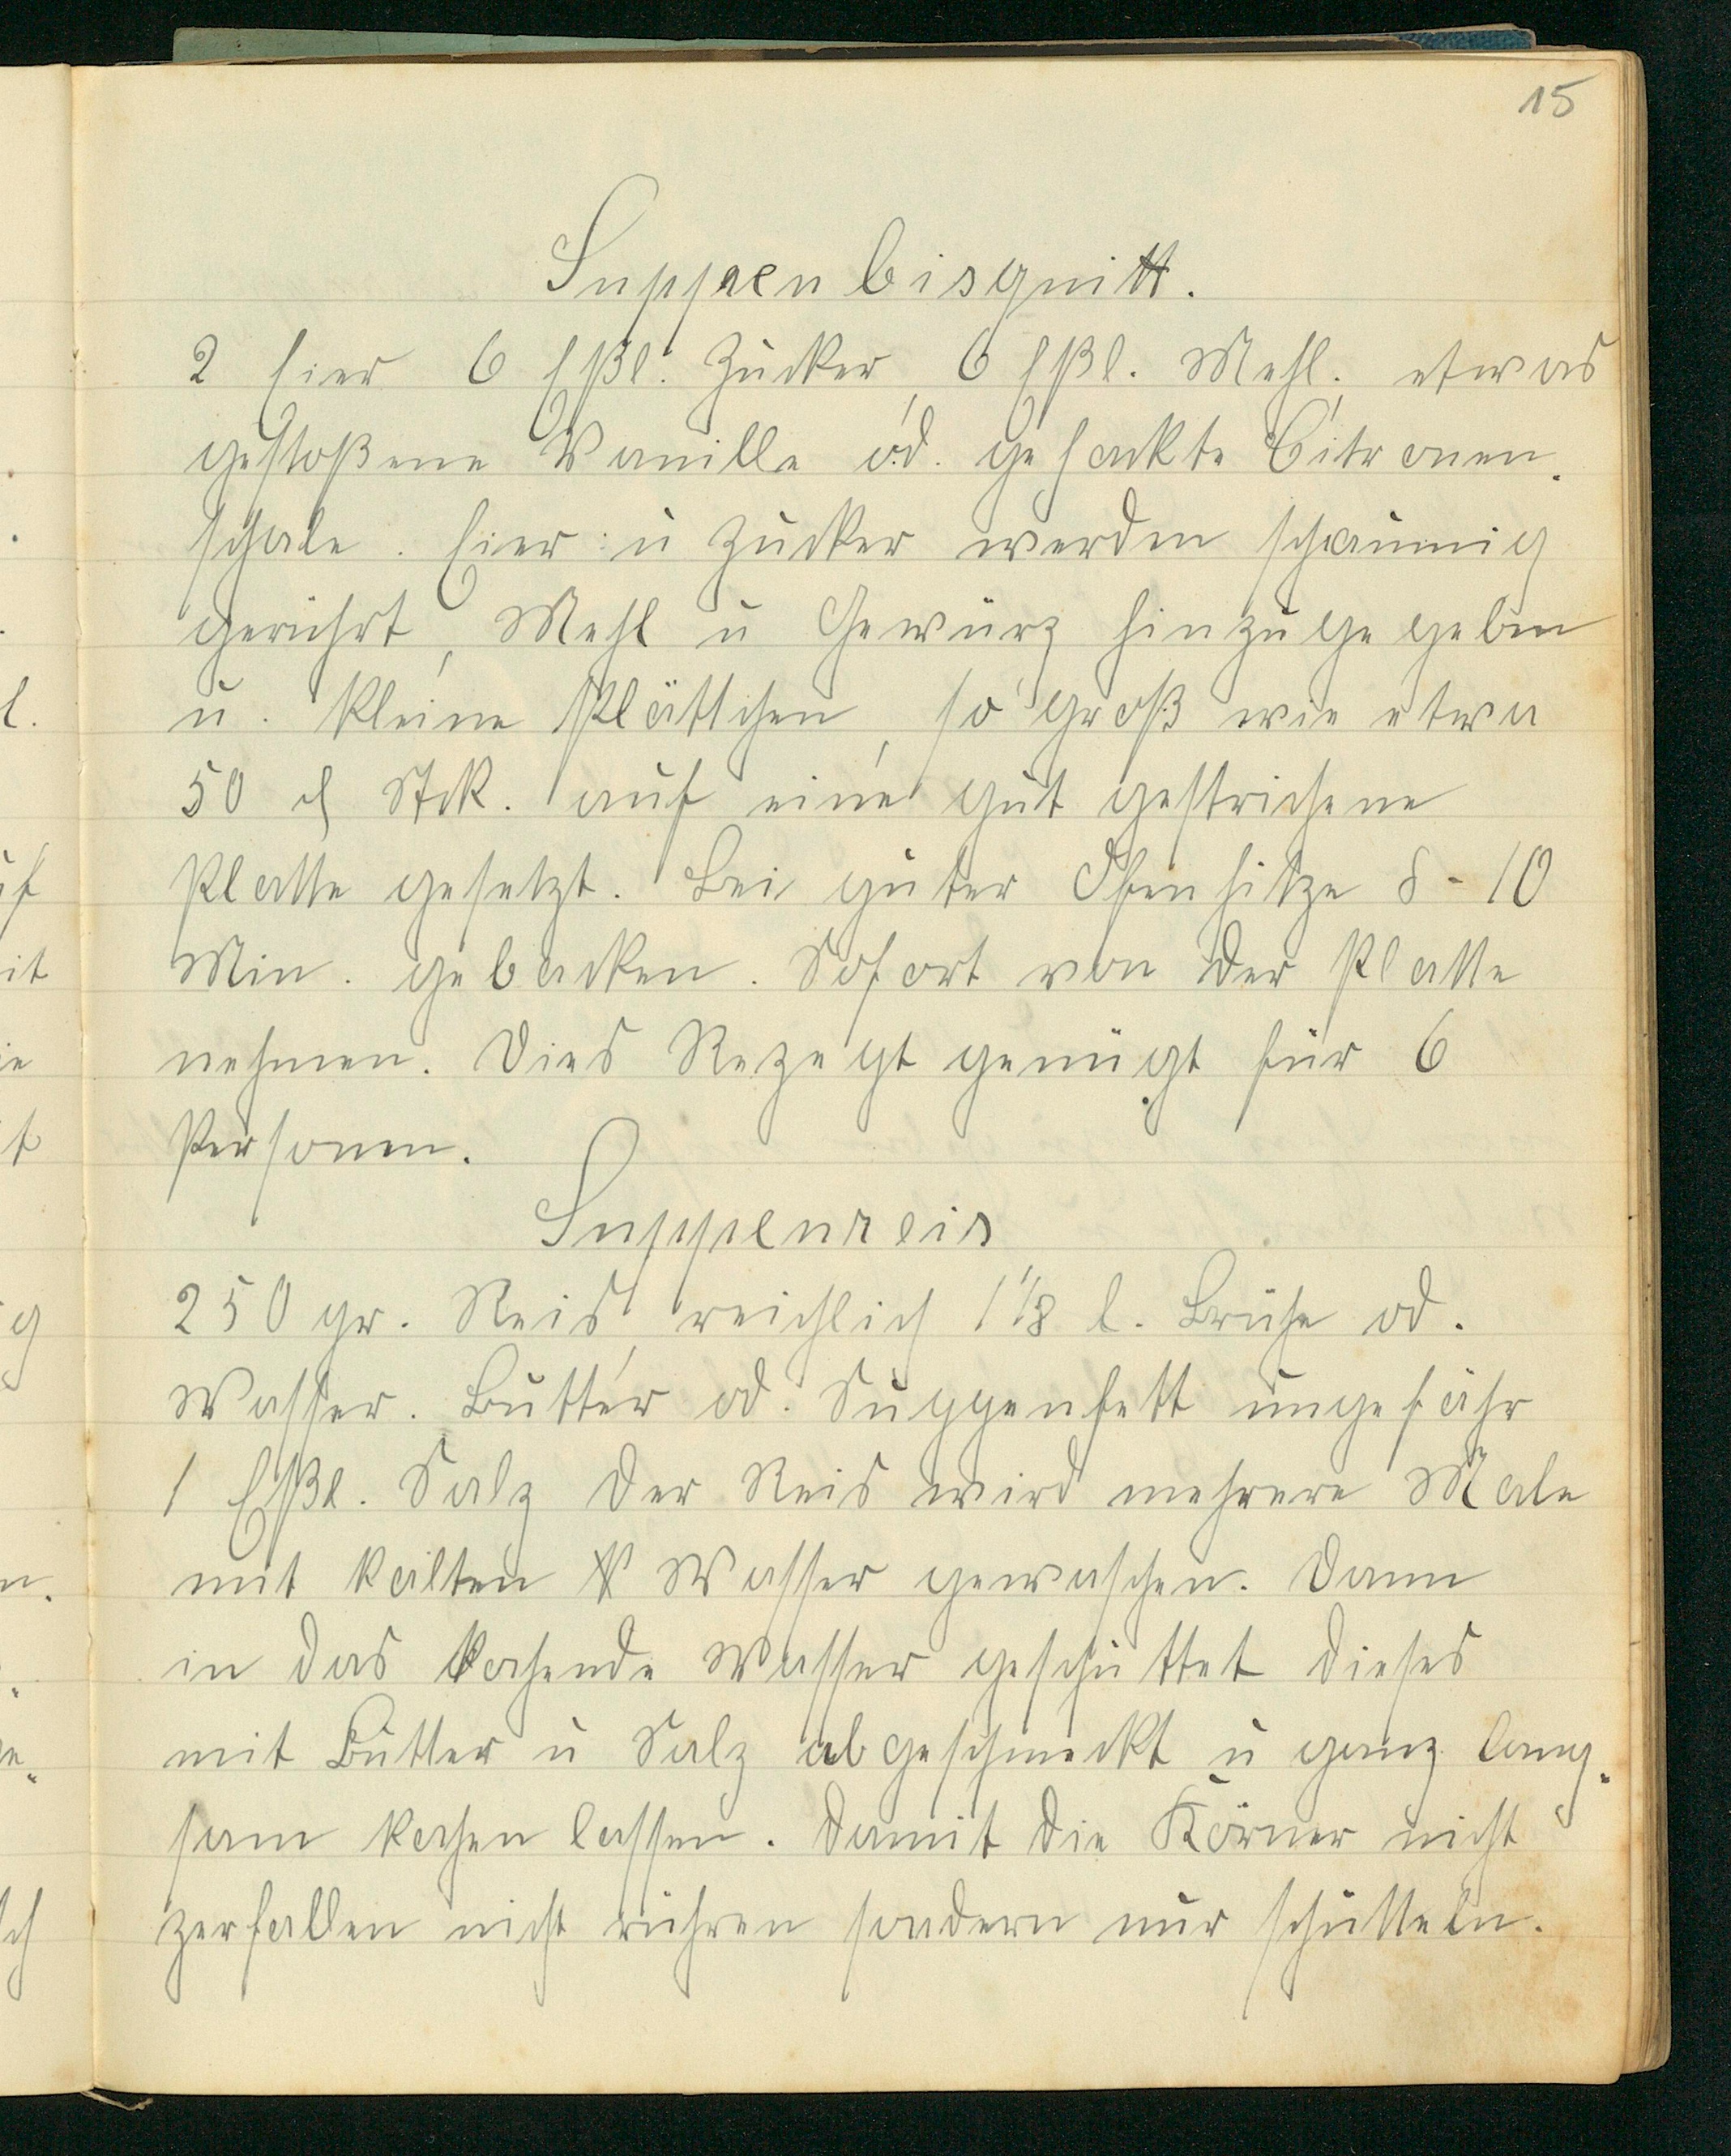 15
Suppenbisquitt.
2 Eier 6 Eßl. Zucker, 6 Eßl. Mehl, etwas
gestoßene Vanille od. gehackte Citronen-
schale. Eier u Zucker werden schaumig
gerührt, Mehl u Gewürz hinzugegeben
u. kleine Plättchen, so groß wie etwa
50 ₰ Stck. auf eine gut gestrichene
Platte gesetzt. Bei guter Ofenhitze 8-10
Min. gebacken. Sofort von der Platte
nehmen. Dies Rezept genügt für 6
Personen.
Suppenreis
250 gr. Reis, reichlich 1 1/8 l. Brühe od.
Wasser. Butter od. Suppenfett ungefähr
1 Eßl. Salz Der Reis wird mehrere Male
mit kalten Wasser gewaschen. Dann
in das kochende Wasser geschüttet dieses
mit Butter u Salz abgeschmeckt u ganz lang-
sam kochen lassen. Damit die Körner nicht
zerfallen nicht rühren sondern nur schütteln.